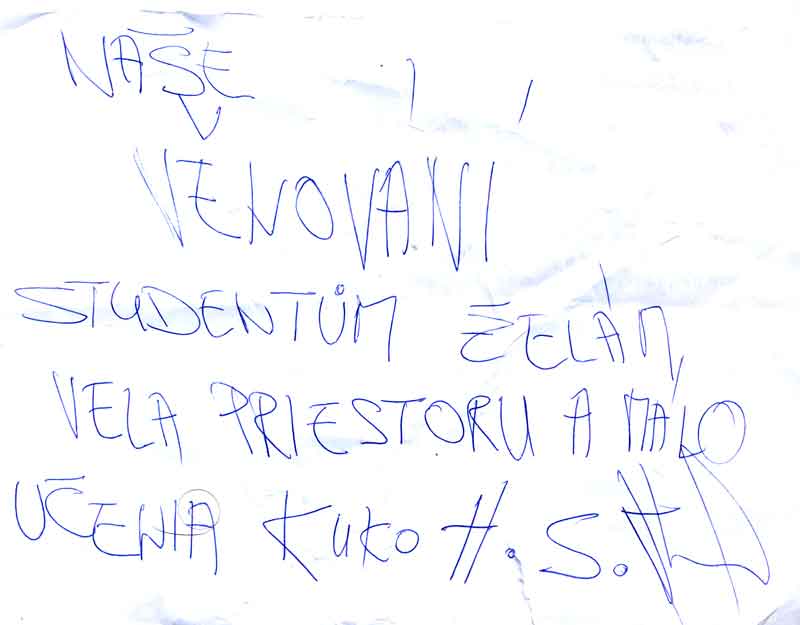 NAŠE
VĚNOVANÍ
STUDENTŮM ŽELÁM
VELA PRIESTORU A MÁLO
UČENIA KUKO H. S.